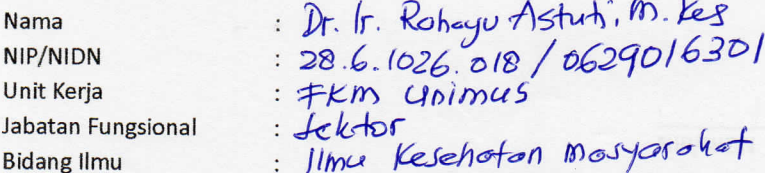 Nama : Dr. Ir. Rahayu Astuti, M. Kes
NIP/NIDN : 28.6.1026.018 / 0629016301
Unit Kerja : FKM Unimus
Jabatan Fungsional : Lektor
Bidang Ilmu : Ilmu Kesehatan Masyarakat